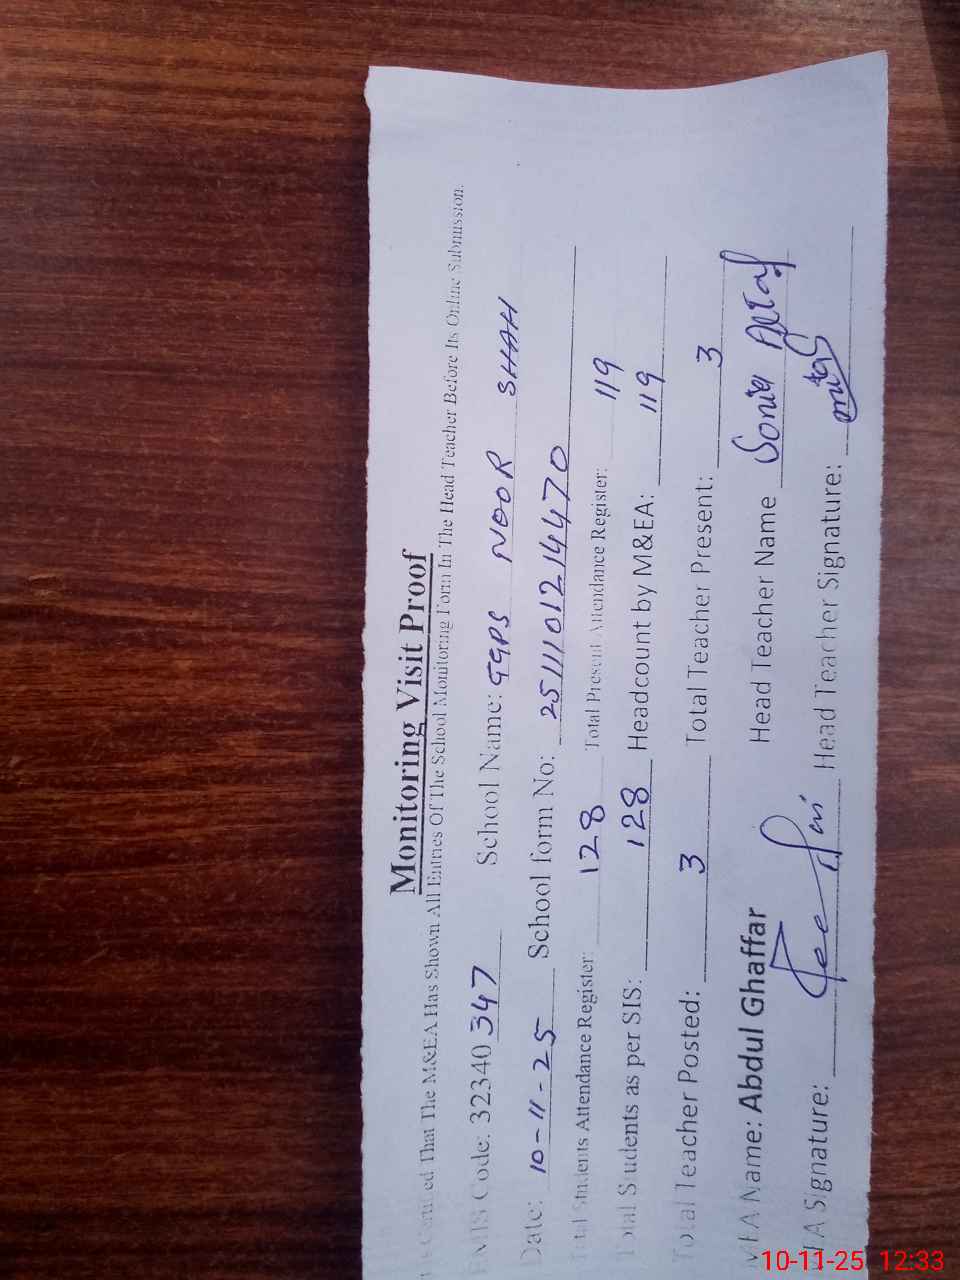 Monitoring Visit Proof
That The M&EA Has Shown All Entries Of The School Monitoring Form In The Head Teacher Before Its Online Submission.
EMIS Code: 32340347 School Name: GGPS NOOR SHAH
Date: 10-11-25 School form No: 251110121 4470
Total Students Attendance Register: 128 Total Present Attendance Register: 119
Total Students as per SIS: 128 Headcount by M&EA: 119
Total Teacher Posted: 3 Total Teacher Present: 3
MEA Name: Abdul Ghaffar Head Teacher Name Sonia Altaf
MEA Signature: Head Teacher Signature:
10-11-25 12:33